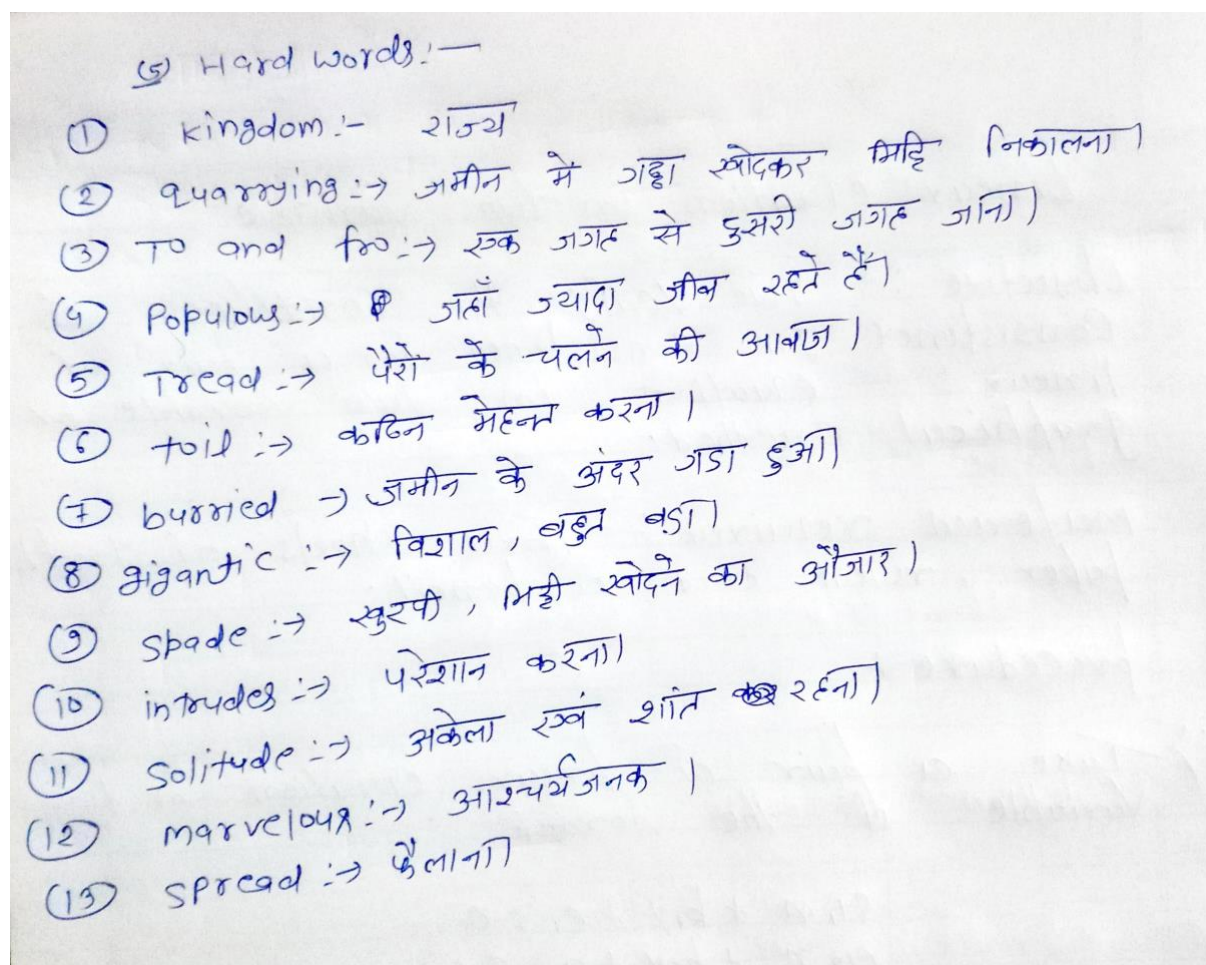 (5) Hard words:—
① kingdom:- राज्य
② quarrying:→ जमीन मे गड्ढा खोदकर मिट्टि निकालना।
③ To and fro:→ एक जगह से दुसरी जगह जाना।
④ Populous:→ जहाँ ज्यादा जीव रहते हैं।
⑤ Tread:→ पैरो के चलने की आवाज।
⑥ toil:→ कठिन मेहनत करना।
⑦ burried → जमीन के अंदर गडा हुआ।
⑧ gigantic:→ विशाल, बहुत बडा।
⑨ spade:→ खुरपी, मिट्टी खोदने का औजार।
⑩ intrudes:→ परेशान करना।
⑪ Solitude:→ अकेला एवं शांत रहना।
⑫ marvelous:→ आश्चर्यजनक।
⑬ spread:→ फैलाना।